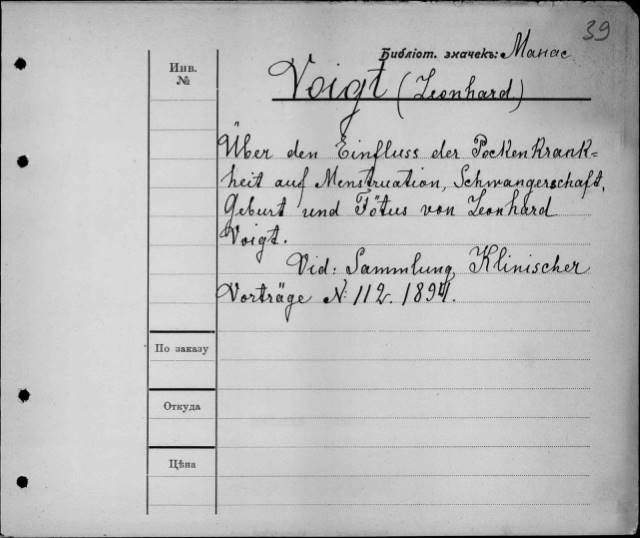 39
Библіот. значекъ: Манас
Инв.
№
Voigt (Leonhard)
Über den Einfluss der Pockenkrank=
heit auf Menstruation, Schwangerschaft,
Geburt und Fötus von Leonhard
Voigt.
Vid: Sammlung Klinischer
Vorträge N: 112. 1894.
По заказу
Откуда
Цѣна